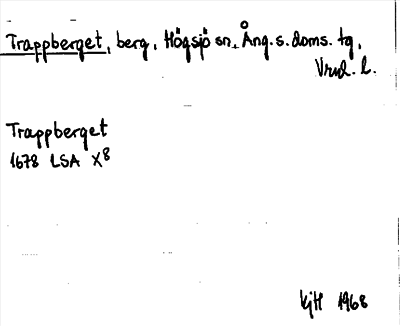 Trappberget, berg, Högsjö sn, Ång. s. doms. tg,
l.
Trappberget
1678 LSA X8
KjH 1968